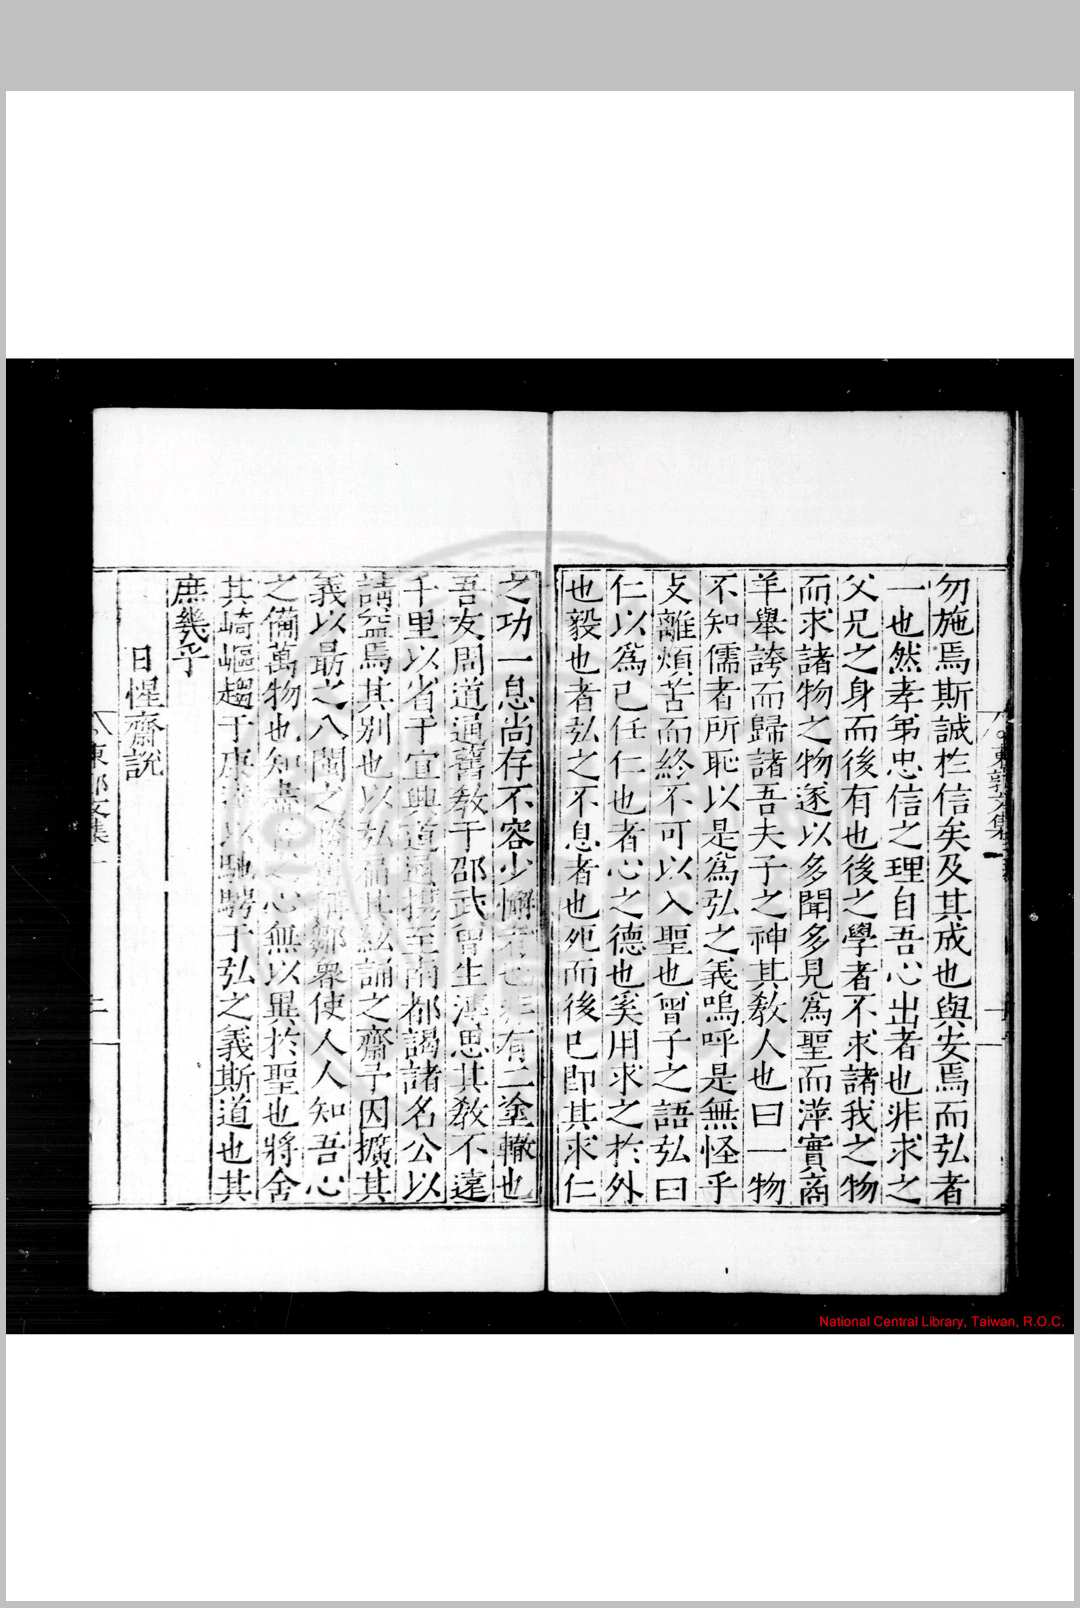 勿施焉斯誠於信矣及其成也與安焉而弘者
一也然孝弟忠信之理自吾心出者也非求之
父兄之身而後有也後之學者不求諸我之物
而求諸物之物遂以多聞多見爲聖而萍實商
羊舉誇而歸諸吾夫子之神其教人也曰一物
不知儒者所恥以是爲弘之義嗚呼是無怪乎
支離煩苦而終不可以入聖也曾子之語弘曰
仁以爲已任仁也者心之德也奚用求之於外
也毅也者弘之不息者也死而後已即其求仁
之功一息尚存不容少懈者也非有二塗轍也
吾友周道通舊教于邵武曾生 思其教不遠
千里以省于宜興道通携至南都謁諸名公以
請益焉其别也以弘齋其 誦之齋子因擴其
義以最之八閩之 鄒 使人人知吾心
之備萬物也知盡 心無以異於聖也將舍
其崎嶇趨于康 以馳騁于弘之義斯道也其
庶幾乎
日惺齋說
東郭文集
東郭文集一
二